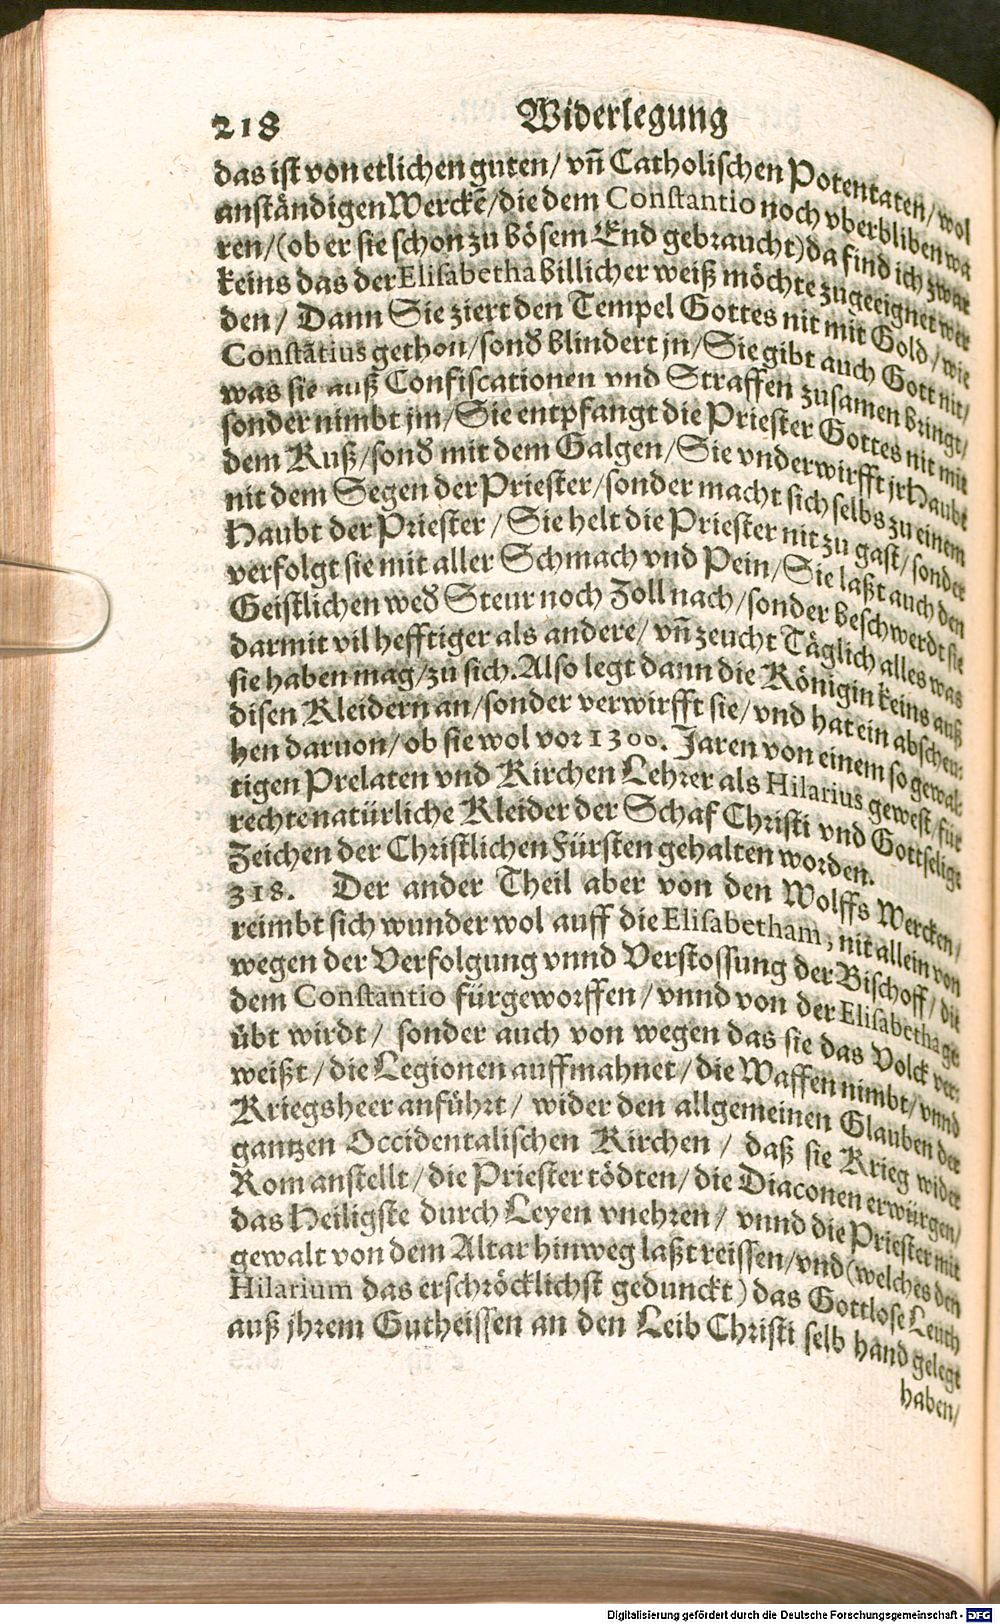 218 Widerlegung
das ist von etlichen guten/ vñ Catholischen Potentaten/ wol
anständigen Werckẽ/die dem Constantio noch vberbliben wa
ren/(ob er sie schon zu bösem End gebraucht) da find ich zwar
keins das der Elisabetha billicher weiß möchte zugeeignet wer
den/ Dann Sie ziert den Tempel Gottes nit mit Gold/ wie
Constãtius gethon/sonð blindert jn/Sie gibt auch Gott nit/
was sie auß Confiscationen vnd Straffen zusamen bringt/
sonder nimbt jm/ Sie entpfangt die Priester Gottes nit mit
dem Kuß/sonð mit dem Galgen/Sie vnderwirfft jr Haubt
nit dem Segen der Priester/sonder macht sich selbs zu einem
Haubt der Priester/ Sie helt die Priester nit zu gast/ sonder
verfolgt sie mit aller Schmach vnd Pein/Sie laßt auch den
Geistlichen weð Steur noch Zoll nach/sonder beschwerdt sie
darmit vil hefftiger als andere/ vñ zeucht Täglich alles was
sie haben mag/zu sich. Also legt dann die Königin keins auß
disen Kleidern an/sonder verwirfft sie/vnd hat ein abscheu-
hen daruon/ ob sie wol vor 1300. Jaren von einem so gewal-
tigen Prelaten vnd Kirchen Lehrer als Hilarius gewest/für
rechte natürliche Kleider der Schaf Christi vnd Gottselige
Zeichen der Christlichen Fürsten gehalten worden.
318. Der ander Theil aber von den Wolffs Wercken/
reimbt sich wunder wol auff die Elisabetham, nit allein von
wegen der Verfolgung vnnd Verstossung der Bischoff/ die
dem Constantio fürgeworffen/ vnnd von der Elisabetha ge
übt wirdt/ sonder auch von wegen das sie das Volck ver-
weißt/ die Legionen auffmahnet/ die Waffen nimbt/ vnnd
Kriegsheer anführt/ wider den allgemeinen Glauben der
gantzen Occidentalischen Kirchen/ daß sie Krieg wider
Rom anstellt/ die Priester tödten/ die Diaconen erwürgen/
das Heiligste durch Leyen vnehren/ vnnd die Priester mit
gewalt von dem Altar hinweg laßt reissen/vnd (welches den
Hilarium das erschröcklichst gedunckt) das Gottlose Leuth
auß jhrem Gutheissen an den Leib Christi selb hand gelegt
haben/
Digitalisierung gefördert durch die Deutsche Forschungsgemeinschaft - DFG